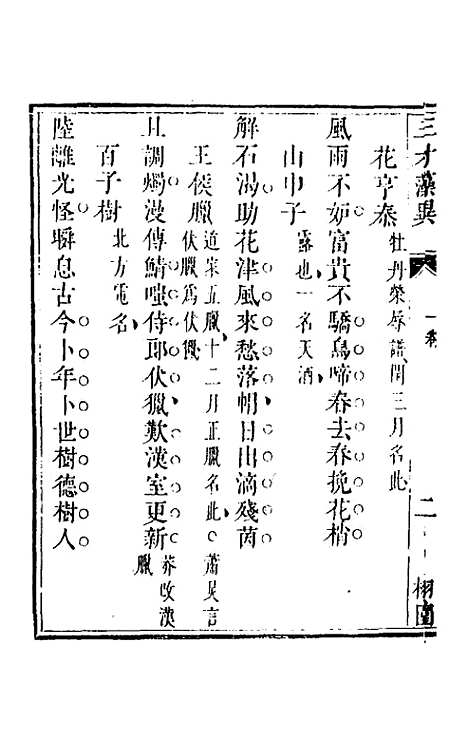 三才藻異 一卷 二 栩園
花亭泰 牡丹榮辱誌閏三月名此
風雨不妒富貴不驕鳥啼春去春挽花梢
山中子 露也一名天酒
解石渴助花津風來愁落朝日出滴殘茵
王侯臘 道家五臘十二月正臘名此蕭炅言
伏臘爲伏獵
且調燭漫傳鯖嗤侍郎伏獵歎漢室更新 莽改漢
臘
百子樹 北方電名
陸離光怪瞬息古今卜年卜世樹德樹人